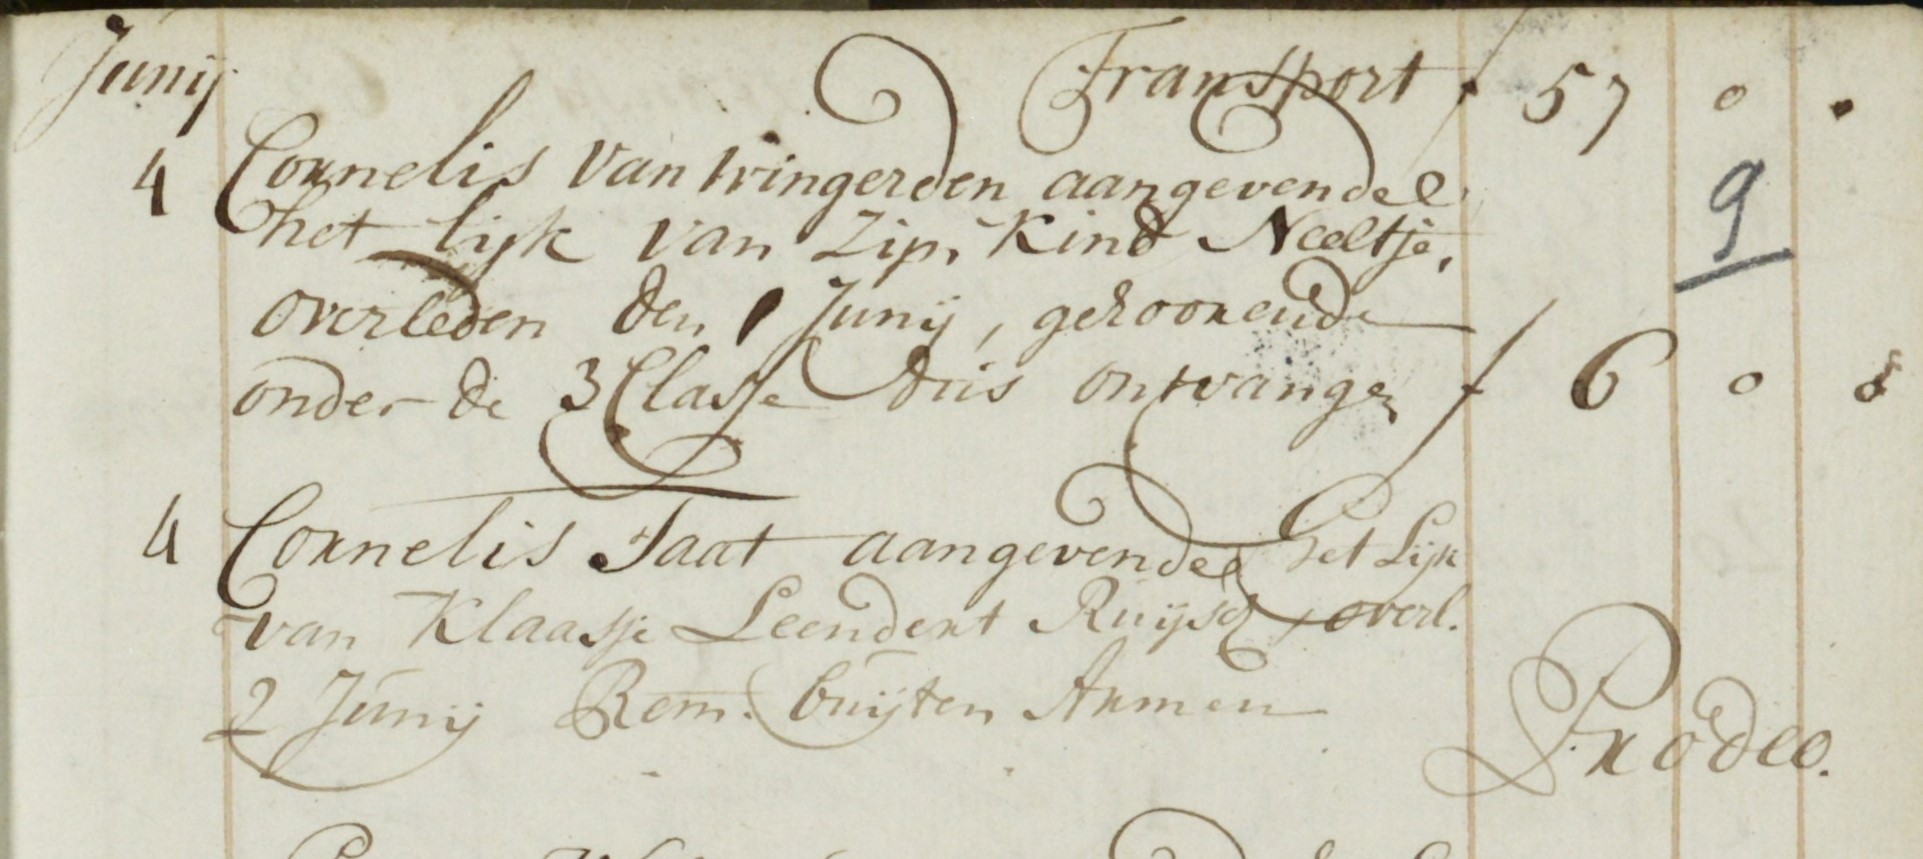 Junij Transport f 57 0 .
4 Cornelis van Wingerden aangevende
9
het lijk van Zijn Kind Neeltje,
overleden den 1 Junij, gehoorende
onder de 3 Classe dus ontvange f 6 0 0
4 Cornelis Taat aangevende het Lijk
van Klaasje Leendert Ruijsch, overl.
2 Junij Rem. buijten Armen
Prodeo.